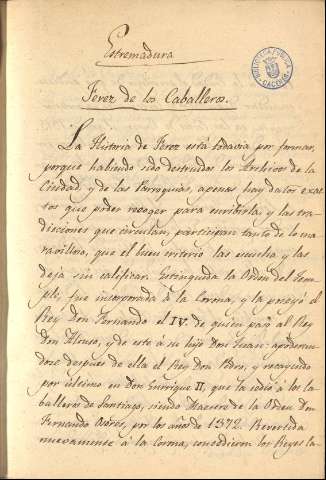 Estremadura
BIBLIOTECA PUBLICA
CACERES
Jerez de los Caballeros.
La Historia de Jerez está todavia por formar,
porque habiendo sido destruidos los Archivos de la
Ciudad, y de las Parroquias, apenas hay datos exac-
tos que poder recoger para escribirla, y las tra-
diciones que circulan, participan tanto de lo ma-
ravilloso, que el buen criterio las escucha y las
deja sin calificar. Estinguida la Orden del Tem-
ple, fue incorporada á la Corona, y la poseyó el
Rey Don Fernando el IV. de quien pasó al Rey
Don Alonso, y de este á su hijo Don Juan: apoderan-
dose despues de ella el Rey Don Pedro, y recayendo
por ultimo en Don Enrique II, que la cedió á los Ca-
balleros de Santiago, siendo Maestre de la Orden Don
Fernando Osores, por los años de 1372. Revertida
nuevamente á la Corona, concedieron los Reyes la